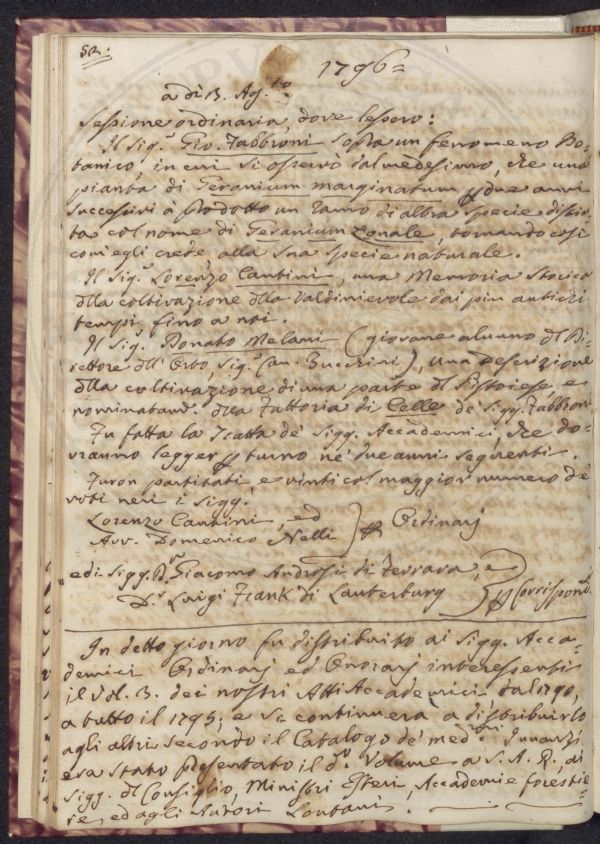 52.
1796=
a dì 13. Ag.to
Sessione ordinaria, dove lessero:
Il Sig.r Gio. Fabbroni sopra un fenomeno Bo-
tanico, in cui si osservò dal medesimo, che una
pianta di Geranium marginatum p due anni
successivi à prodotto un ramo di altra specie distin-
ta col nome di Geranium Zonale, tornando così
com'egli crede alla sua specie naturale.
Il Sig.r Lorenzo Cantini, una Memoria Storica
dlla coltivazione dlla Valdinievole dai più antichi
tempi, fino a noi.
Il Sig. Donato Melani (giovane alunno dl Di-
rettore dll'Orto, Sig.r Can. Zucchini), una Descrizione
dlla coltivazione di una parte dl Pistoiese, e
nominatamt. dlla Fattoria di Celle de' Sigg. Fabbroni
Fu fatta la Tratta de' Sigg. Accademici, che do-
vranno legger p turno ne' due anni seguenti.
Furon partitati, e vinti col maggior numero de'
voti neri i Sigg.
Lorenzo Cantini, ed
Avv. Domenico Nelli p Ordinarj
ed i Sigg. D.r Giacomo Androsi di Ferrara, e
D.r Luigi Frank di Lauterburg p Corrispond.
In detto giorno fu distribuito ai Sigg. Acca-
demici Ordinarj ed Onorarj interessenti
il Vol. 3. dei nostri Atti Accademici dal 1790,
a tutto il 1795; e si continuerà a distribuirlo
agli altri secondo il Catalogo de' med.mi Innanzi
era stato presentato il d.o Volume a S. A. R. ai
Sigg. dl Consiglio, Ministri Esteri, Accademie forestie-
re, ed agli Autori Lontani.